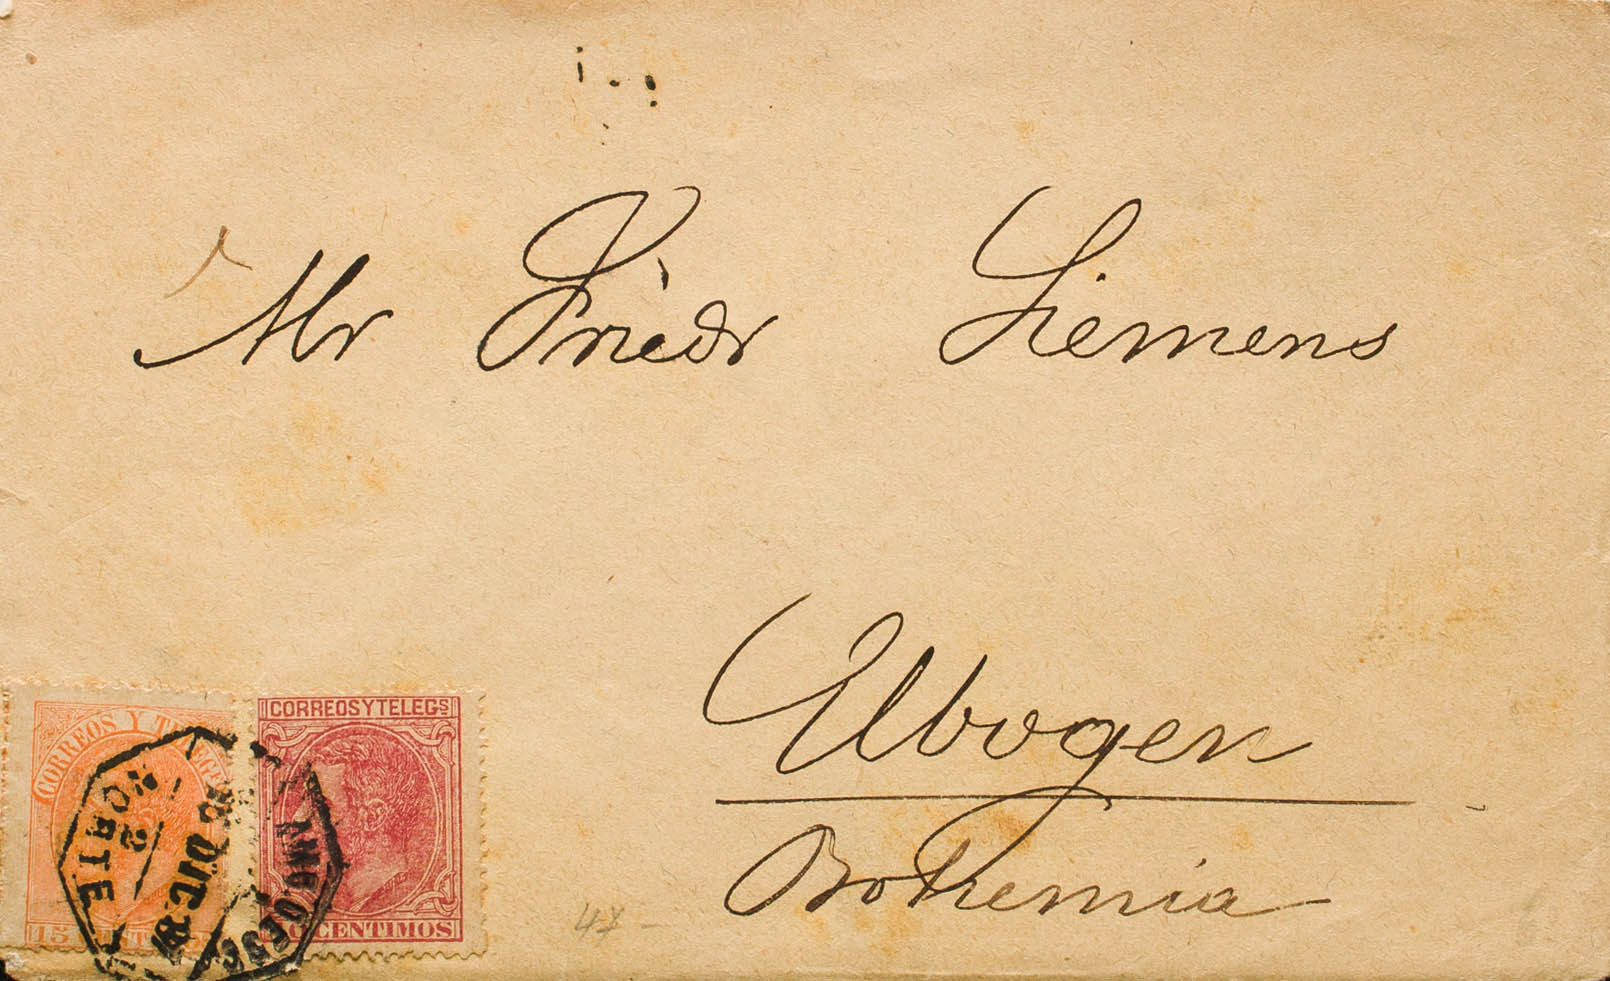 Mr Friedr Siemens
Elbogen
Bohemia
CORREOS Y TELEG
15
CORREOS Y TELEGS
CENTIMOS
NORTE
2
DIC
47 -